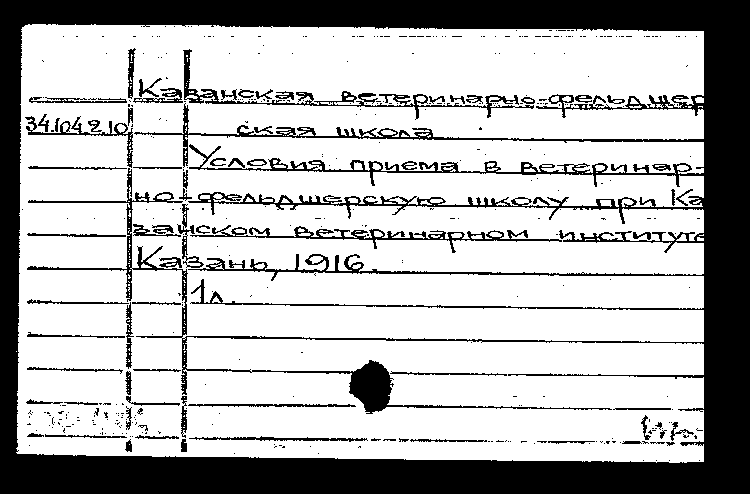 Казанская ветеринарно-фельдшер
34.104.2.10 ская школа
Условия приема в ветеринар-
но-фельдшерскую школу при Ка
занском ветеринарном институте
Казань, 1916.
1л.